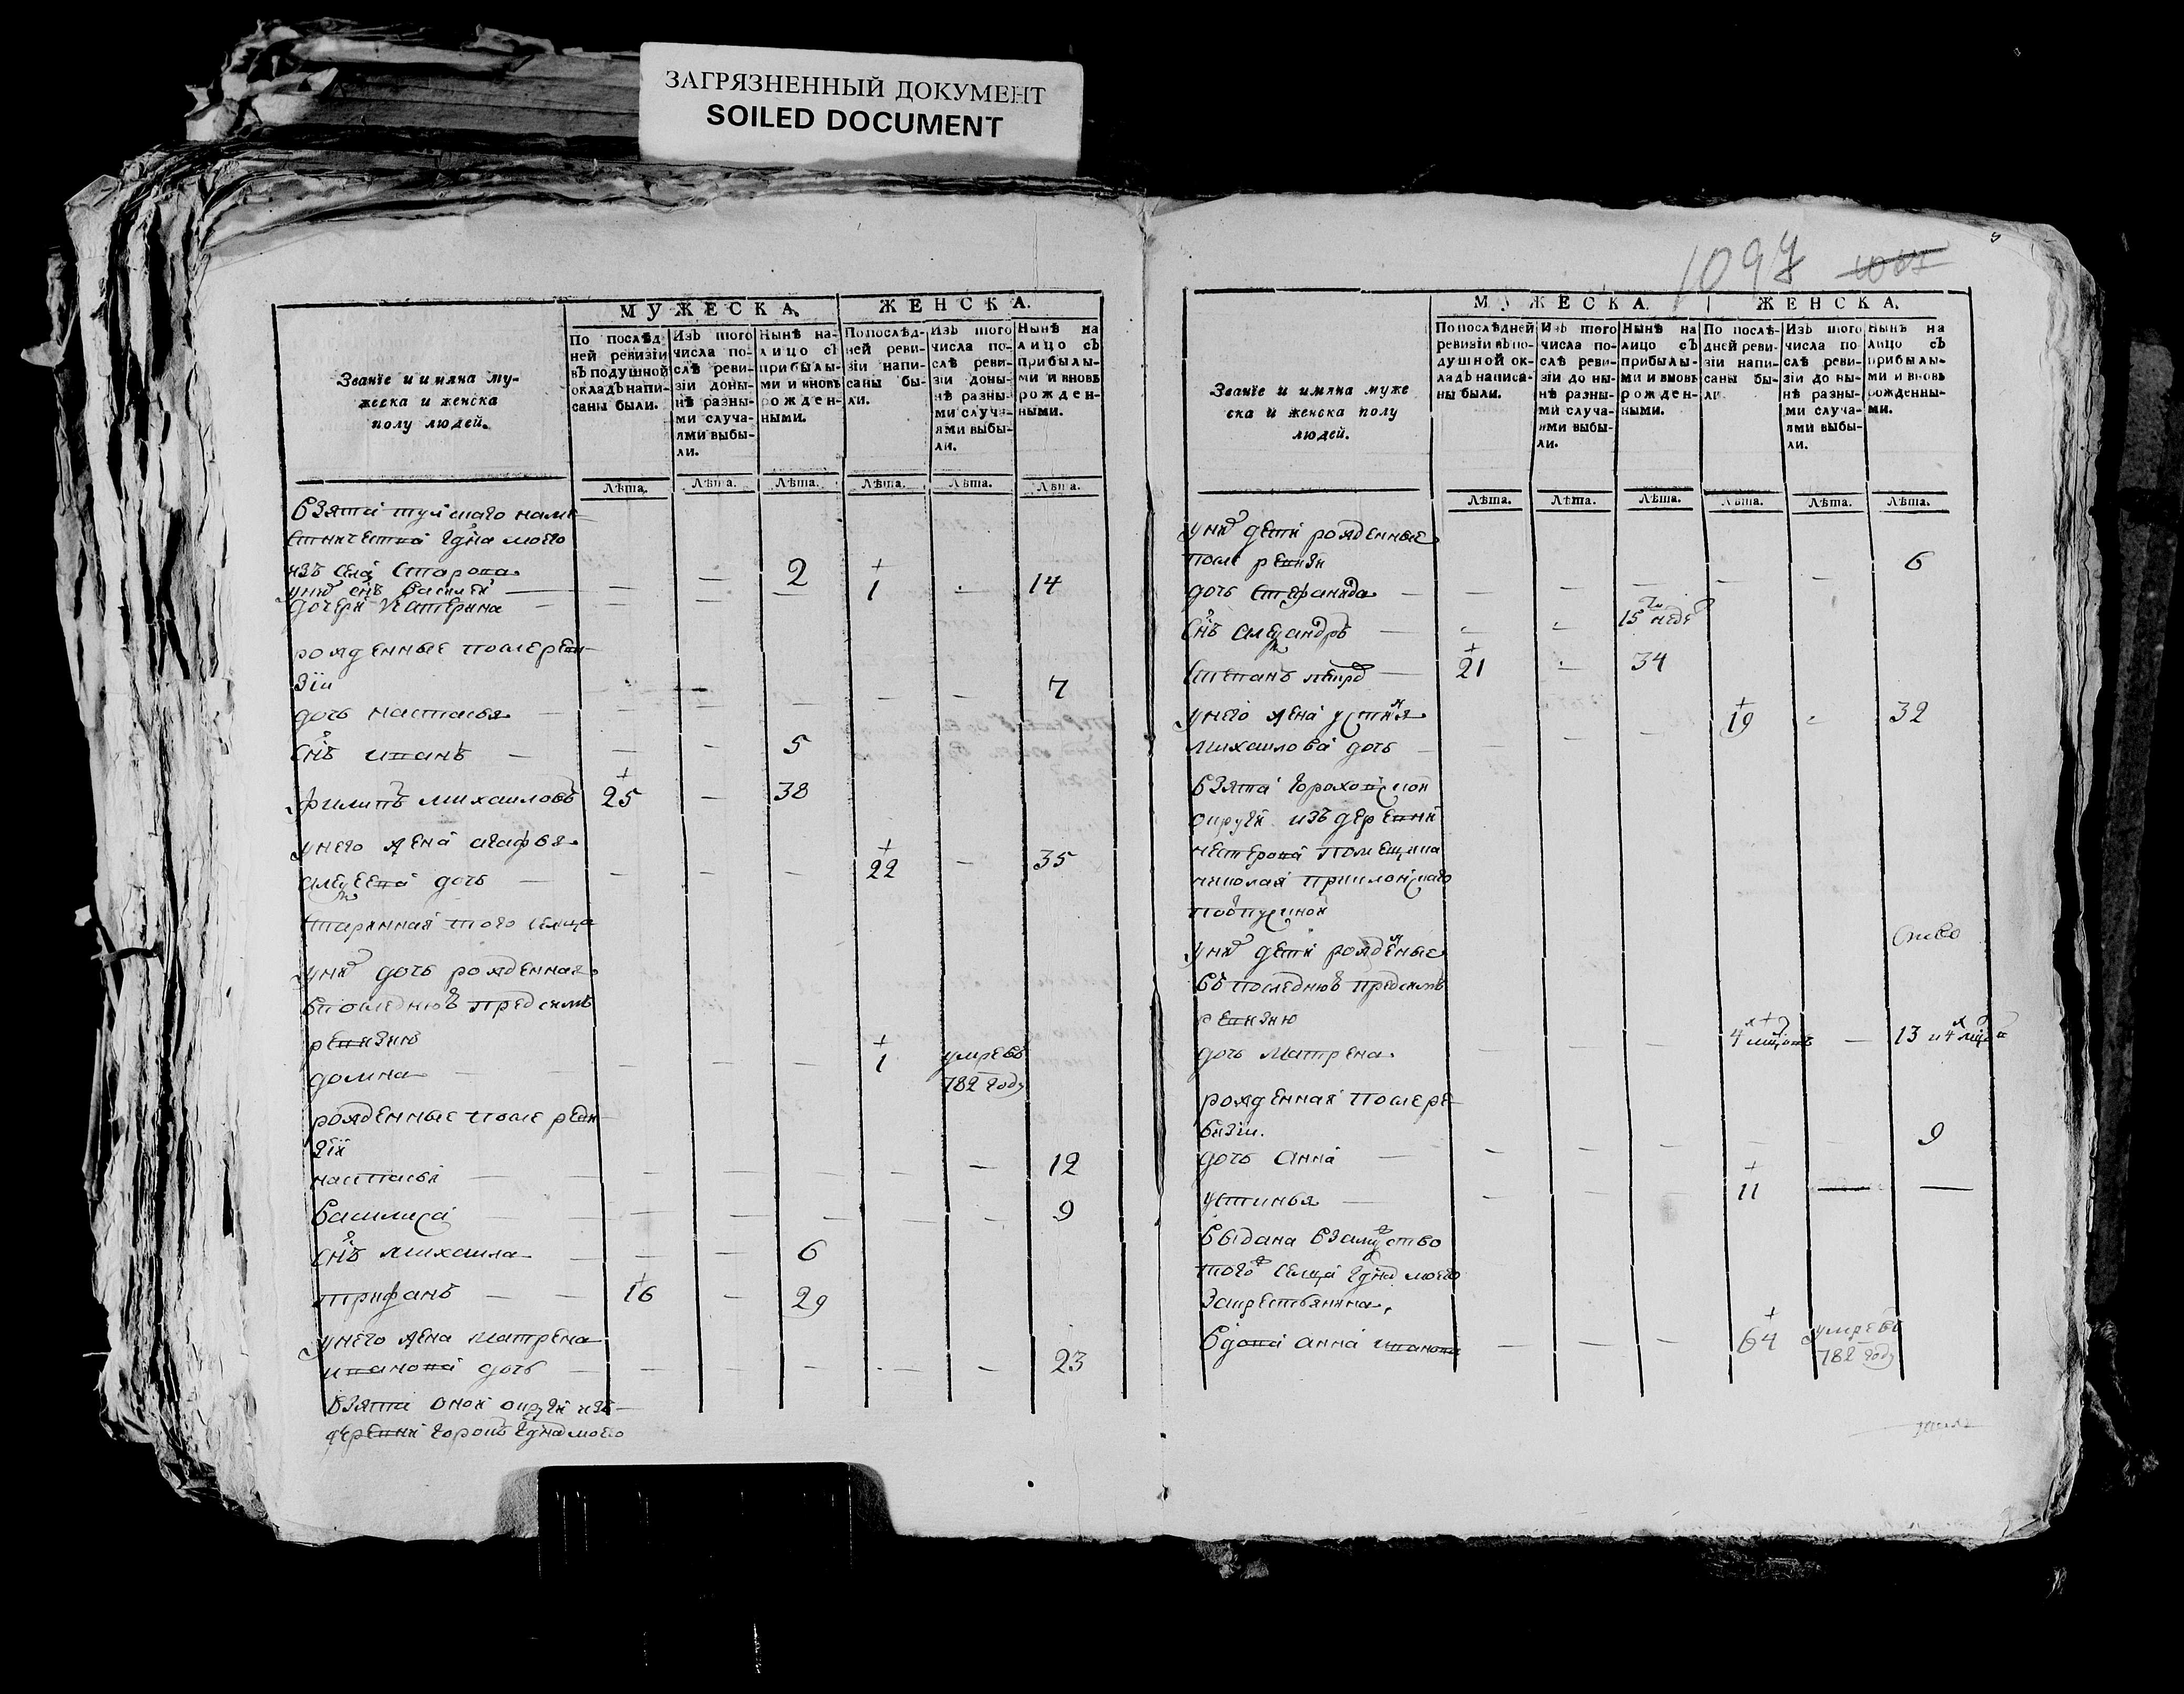 ЗАГРЯЗНЕННЫЙ ДОКУМЕНТ
SOILED DOCUMENT
Званїе и имяна му-
жеска и женска
полу людей.
МУЖЕСКА.
ЖЕНСКА.
По послѣд-
ней ревизіи
въ подушной
окладъ напи-
саны были.
Изъ того
числа по-
слѣ реви-
зіи доны-
нѣ разны-
ми случа-
ями выбы-
ли.
Нынѣ на-
лицо съ
прибылы-
ми и вновь
рожден-
ными.
По послѣд-
ней реви-
зіи напи-
саны бы-
ли.
Изъ того
числа по-
слѣ реви-
зіи доны-
нѣ разны-
ми случа-
ями выбы-
ли.
Нынѣ на
лицо съ
прибылы-
ми и вновь
рожден-
ными.
Лѣта. Лѣта. Лѣта. Лѣта. Лѣта. Лѣта.
взята
моего
изъ села
снъ василей — — 2
дочери катерина — — — — 1 - 14
рожденные послереви-
зїи
дочь настасья — — — — — — 7
снъ иванъ — — - 5
филипъ михаиловъ 25 — 38
унего жена агафья
алеѯеева дочь — — — — 22 — 35
старинная того селца
дочь рожденная
впоследнюю пред симъ
ревизию
домна — — — — 1 умре въ
782 году
рожденные после реви-
зїи
настасья — — — — — — 12
василиса — — — — — — 9
снъ михаила — — — 6
трифанъ — — 16 — 29
унего жена матрена
иванова дочь — — — — - — 23
взята оной округи изъ
деревни моего
1097
Званїе и имяна муже
ска и женска полу
людей.
МУЖЕСКА.
ЖЕНСКА.
По послѣдней
ревизіи въ по-
душной ок-
ладъ написа-
ны были.
Изъ того
числа по-
слѣ реви-
зіи до ны-
нѣ разны-
ми случа-
ями выбы-
ли.
Нынѣ на
лицо съ
прибылы-
ми и вновь
рожден-
ными.
По послѣ-
дней реви-
зіи напи-
саны бы-
ли.
Изъ того
числа по-
слѣ реви-
зіи до ны-
нѣ разны-
ми случа-
ями выбы-
ли.
Нынѣ на
лицо съ
прибылы-
ми и вновь
рожденны-
ми.
Лѣта. Лѣта. Лѣта. Лѣта. Лѣта. Лѣта.
дети рожденные
после ревизи
дочь стефанида — — — — — — 6
снъ алеѯандръ — - - 15 неде
степанъ 21 - 34
унего жена устинья
михаилова дочь — — — — 19 - 32
взята гороховской
округи изъ деревни
нестерова помещика
николая приклонскаго
дети рожденые
въ последнюю пред симъ
ревизию
дочь матрена — — — 4 — 13 и 4
рожденная послере
визии.
дочь анна — — — — — — 9
устинья — — — — 11 — —
выдана взамужство
того селца моего
закрестьянина,
вдова анна иванова — — — 64 умре въ
782 году